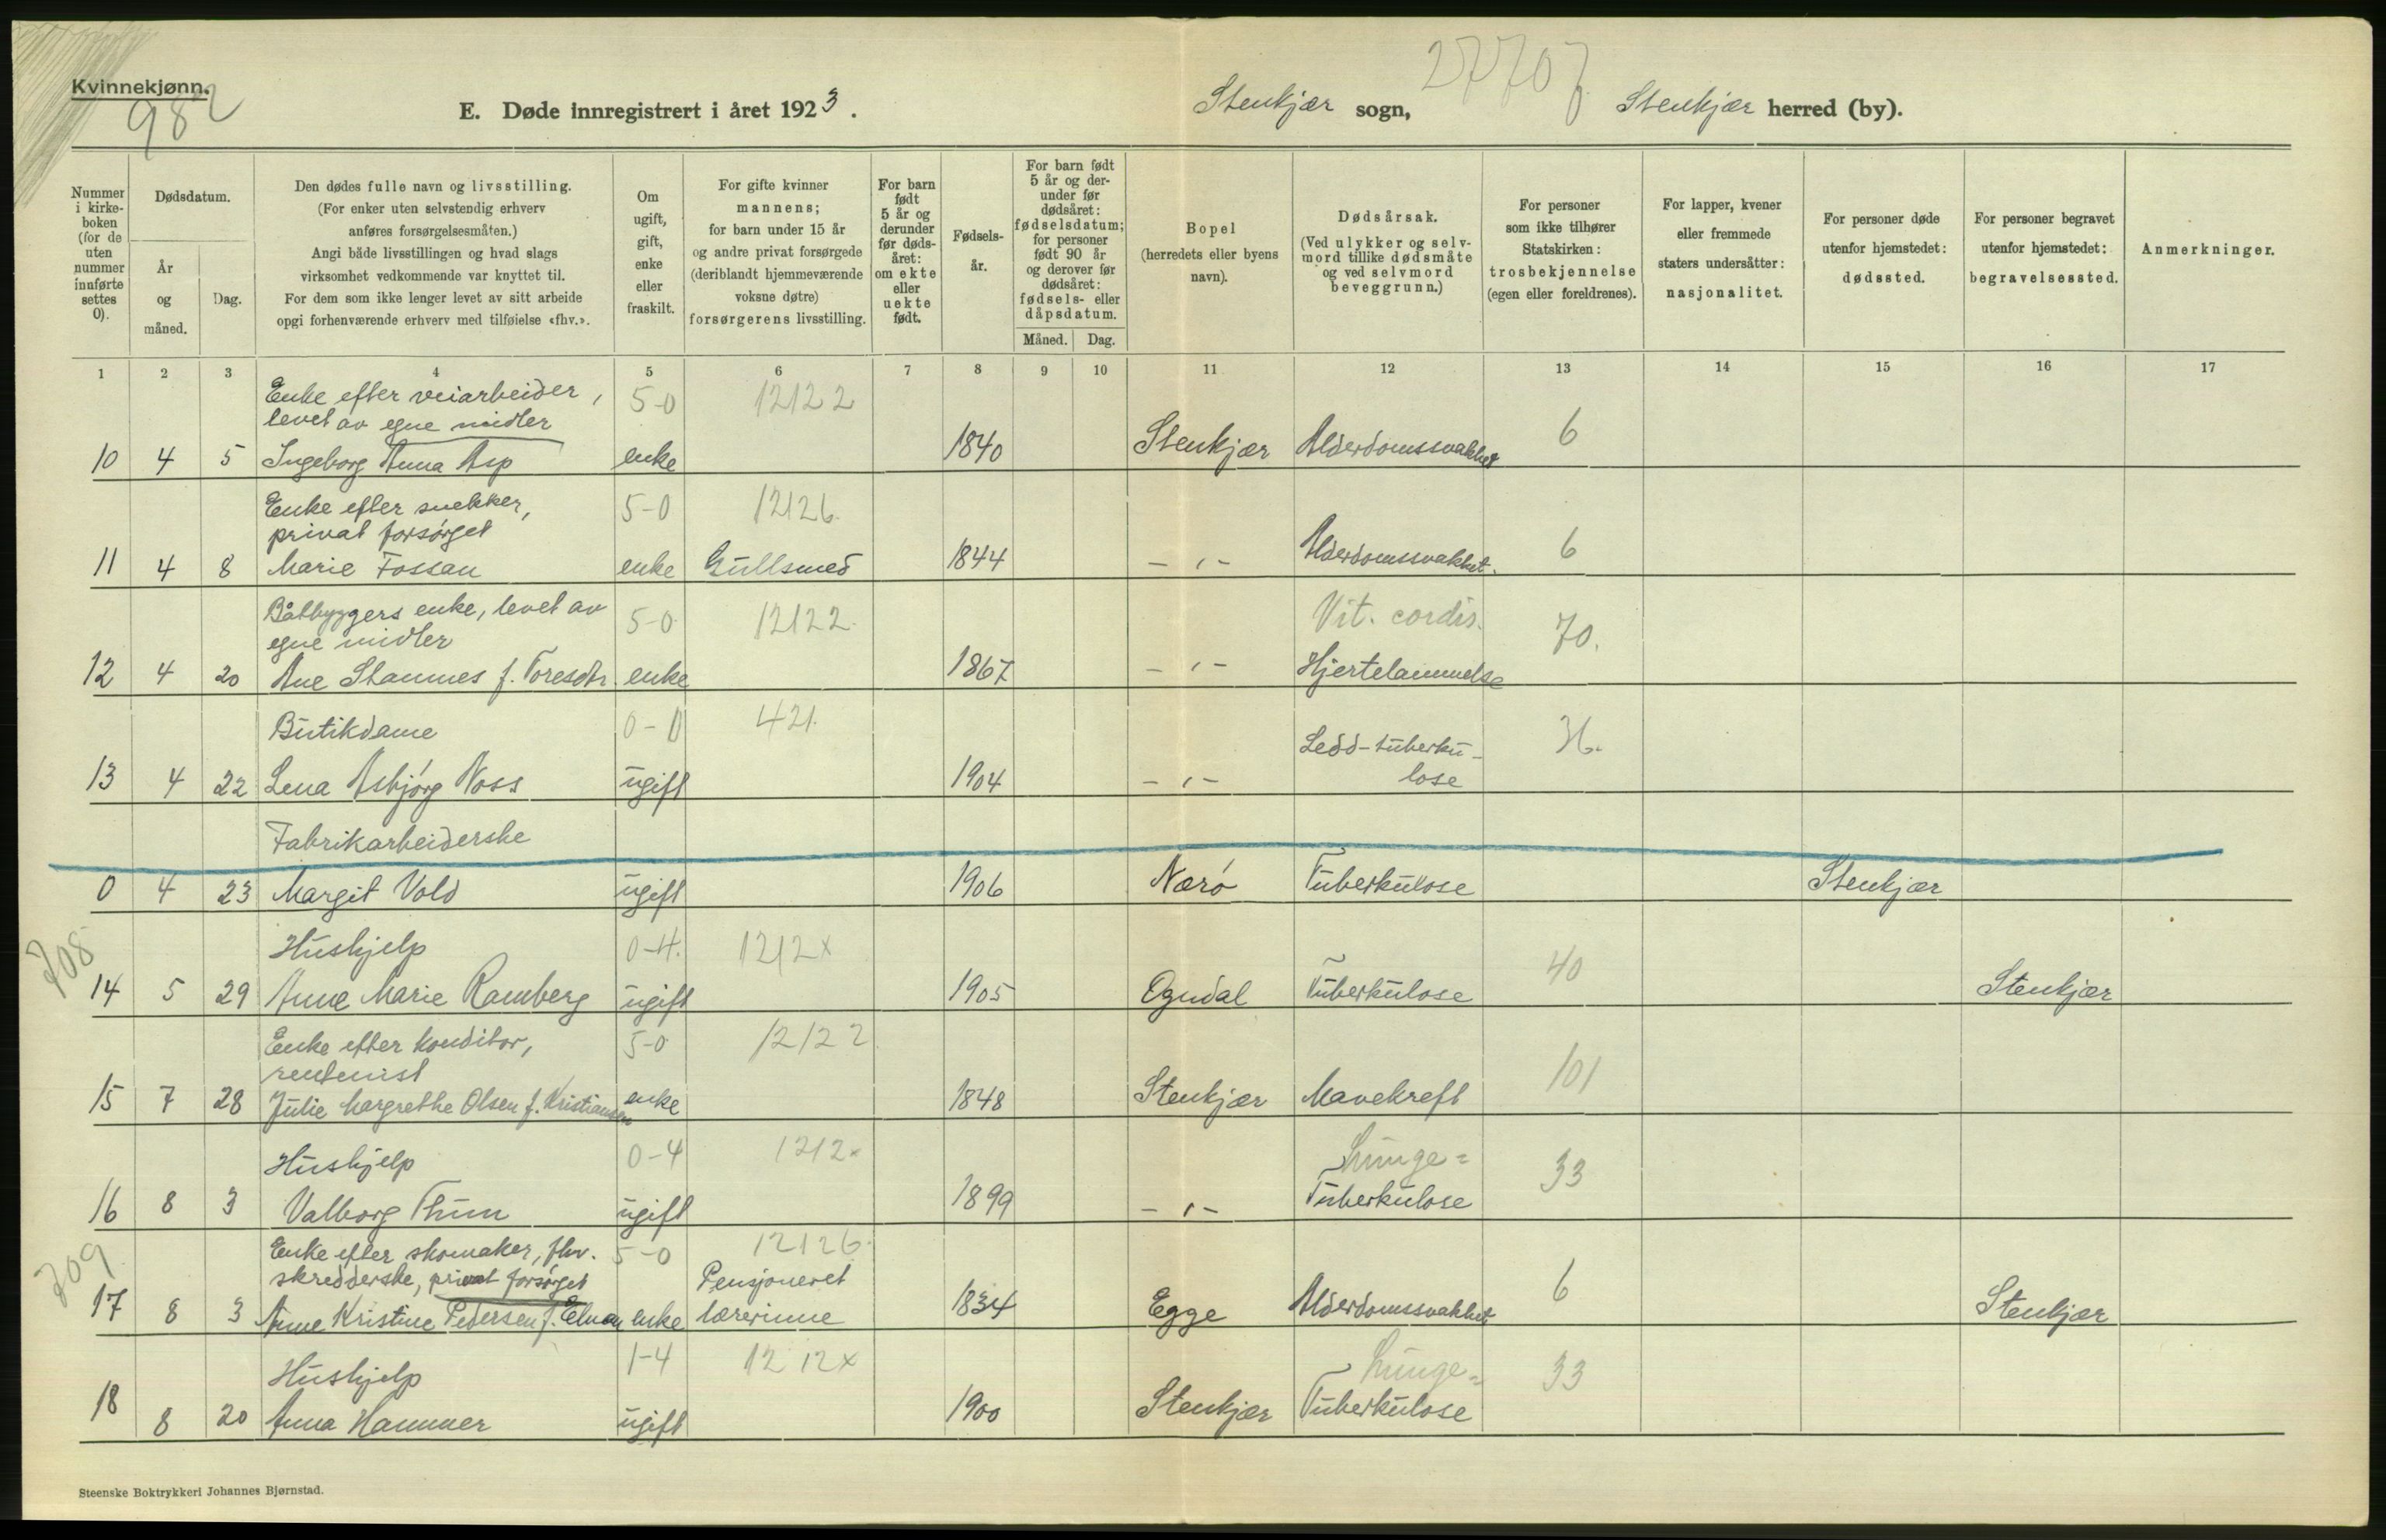 Kvinnekjønn.
982
E. Døde innregistrert i året 1923.
Stenkjær sogn,
27707
Stenkjær herred (by).
Nummer i kirke-boken (for de uten nummer innførte settes 0).
Dødsdatum.
År og måned.
Dag.
Den dødes fulle navn og livsstilling.
(For enker uten selvstendig erhverv
anføres forsørgelsesmåten.)
Angi både livsstillingen og hvad slags
virksomhet vedkommende var knyttet til.
For dem som ikke lenger levet av sitt arbeide
opgi forhenværende erhverv med tilføielse «fhv.».
Om
ugift,
gift,
enke
eller
fraskilt.
For gifte kvinner
mannens;
for barn under 15 år
og andre privat forsørgede
(deriblandt hjemmeværende
voksne døtre)
forsørgerens livsstilling.
For barn
født
5 år og
derunder
før døds-
året:
om ekte
eller
uekte
født.
Fødsels-
år.
For barn født
5 år og der-
under før
dødsåret:
fødselsdatum;
for personer
født 90 år
og derover før
dødsåret:
fødsels- eller
dåpsdatum.
Måned. Dag.
Bopel
(herredets eller byens
navn).
Dødsårsak.
(Ved ulykker og selv-
mord tillike dødsmåte
og ved selvmord
beveggrunn.)
For personer
som ikke tilhører
Statskirken:
trosbekjennelse
(egen eller foreldrenes).
For lapper, kvener
eller fremmede
staters undersåtter:
nasjonalitet.
For personer døde
utenfor hjemstedet:
dødssted.
For personer begravet
utenfor hjemstedet:
begravelsessted.
Anmerkninger.
1 2 3 4 5 6 7 8 9 10 11 12 13 14 15 16 17
Enke efter veiarbeider, 5-0 12122
levet av egne midler
10 4 5 Ingeborg Anna Asp enke 1840 Stenkjær Alderdomssvakhet 6
Enke efter snekker, 5-0 12126.
privat forsørget
11 4 8 Marie Fossan enke Gullsmed 1844 -"- Alderdomssvakhet. 6
Båtbyggers enke, levet av 5-0 12122. Vit. cordis.
egne midler 70.
12 4 20 Ane Stamnes f. Toresdtr. enke 1867 -"- Hjertelammelse
Butikdame 0-0 421. Ledd-tuberku-
13 4 22 Lena Asbjørg Voss ugift 1904 -"- lose 36.
Fabrikarbeiderske
0 4 23 Margit Vold ugift 1906 Nærø Tuberkulose Stenkjær
708
Hushjelp 0-4. 1212x
14 5 29 Anne Marie Ramberg ugift 1905 Ogndal Tuberkulose 40 Stenkjær
Enke efter konditor, 5-0 12122
rentenist
15 7 28 Julie Margrethe Olsen f. Kristiansen enke 1848 Stenkjær Mavekreft 101
Hushjelp 0-4 1212x Lunge-
16 8 3 Valborg Thun ugift 1899 -"- Tuberkulose 33
709
Enke efter skomaker, fhv. 5-0 12126.
skredderske, privat forsørget Pensjoneret
17 8 3 Anne Kristine Pedersen f. enke lærerinne 1834 Egge Alderdomssvakhet 6 Stenkjær
Hushjelp 1-4 1212x Lunge-
18 8 20 Anna Hammer ugift 1900 Stenkjær Tuberkulose 33
Steenske Boktrykkeri Johannes Bjørnstad.